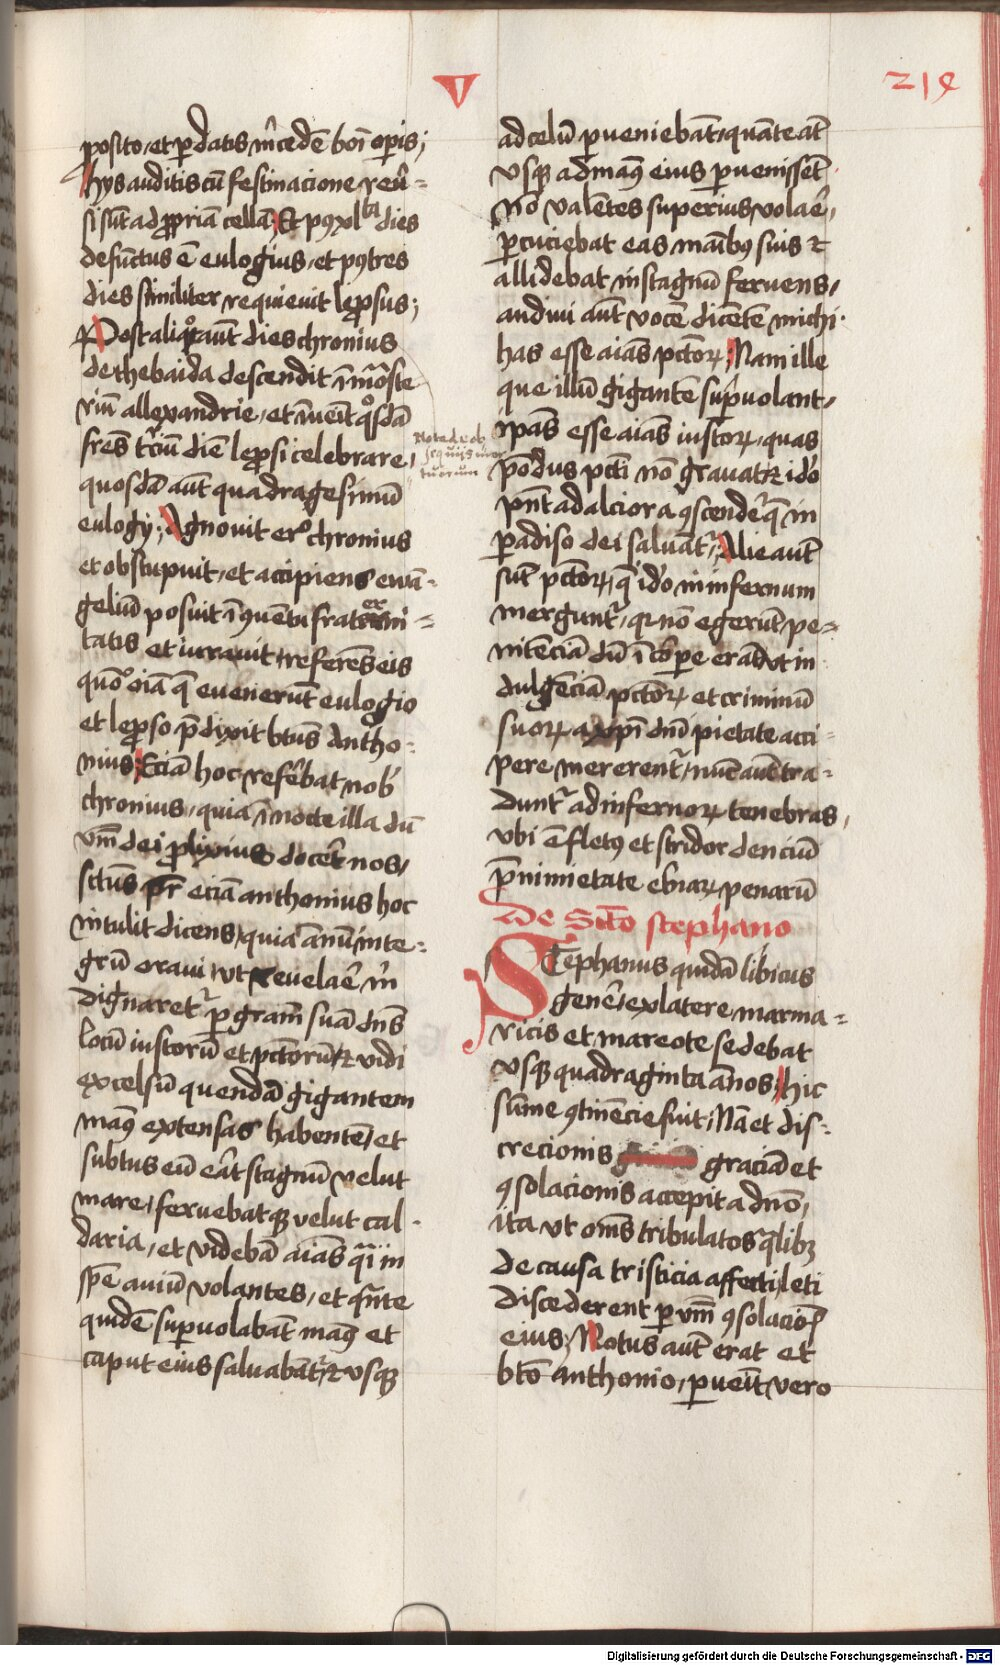 V
219
proposito, et perdatis m̄cedē boī oper̄is;
hys auditis cū festinacione reu̅=
si sūt ad ꝓpriā cellā; Et pꝯ xlta dies
defūctus ē eulogius, et pꝯ tres
dies similiter requieuit leprosus;
Post aliqͦt aūt dies chronius
de thebaida descendit ī mōaste
riū allexandrie, et īuēit qͦsdā
frēs t̄ciū diē leprosi celebrare,
quosdā aūt quadragesimū
eulogy; Agnouit erͦ chronius
et obstupuit, et accipiens ewā=
geliū posuit ī ꝯuētu frat ex=
tatis et iurauit, referēs eis
quōͦ oīa q̄ euenerūt eulogio
et leproso p̄dixit btūs Antho=
nius; Eciā hoc refe̅bat nob̅
chronius, quia ī nocte illa dū
vm̄ dei ꝓlixius doce̅t nos,
sctūs pr̄ eciā anthonius hoc
intulit dicens, quia ānū inte=
grū oraui, vt reuelae̅ m̄
dignaret̅ per gram̄ suā dn̄s
locū iustorū et pctorū, et vidi
excelsū quendā gigantem
manꝯ extensas habentē, et
subtus eū ea̅t stagnū velut
mare, feruebatqꝫ velut cal=
daria, et videbā aīas q̄i in
spē auiū volantes, et q̄nte
quidē superuolabāt manꝯ et
caput eius saluabāt̅, et vsqꝫ
Nota de ob
sequijs mor
tuorum
ad celū pueniebāt, quāte aūt
vsqꝫ ad manꝯ eius peruenissēt
nō valētes superius volae̅,
percuciebat eas manibꝯ suis et
allidebat in stagnū feruens,
audiui aūt vocē dicētē michi
has esse aīas pctoꝝ; Nam ille
que illū gigantē supuolant,
ip̄as esse aīas iustoꝝ, quas
pōdus pcti nō grauat, et idō
pn̄t ad alciora ꝯscende̅ q̄ in
paradiso dei saluāt̅; Alie aūt
sūt pctoꝝ, q̄ idō in infernum
mergunt̅, qꝛ nō egerūt pe=
nitēciā dū ī corꝑe erāt, vt in
dulgēciā pctoꝝ et criminū
suoꝝ a xpi dn̄i pietate acci=
pere mererent̅, nūc aūt tra=
dunt̅ ad infernoꝝ tenebras,
vbi ē fletꝯ et stridor denciū
p̄ nimietate ebriaꝝ penarū
De Scto stephano
Stephanus quidā libicus
gene̅, ex latere marma=
ricis et mareote sedebat
vsqꝫ quadraginta ānos; hic
sūme ꝯtinēcie fuit; Nā et dis=
crecionis graciā et
ꝯsolacionis accepit a dnō,
ita vt om̄s tribulatos q̄libꝫ
de causa tristicia affecti, leti
discederent per vm̄ ꝯsolaciōē
eius; Notus aūt erat et
btō anthonio, peruēit vero
Digitalisierung gefördert durch die Deutsche Forschungsgemeinschaft - DFG